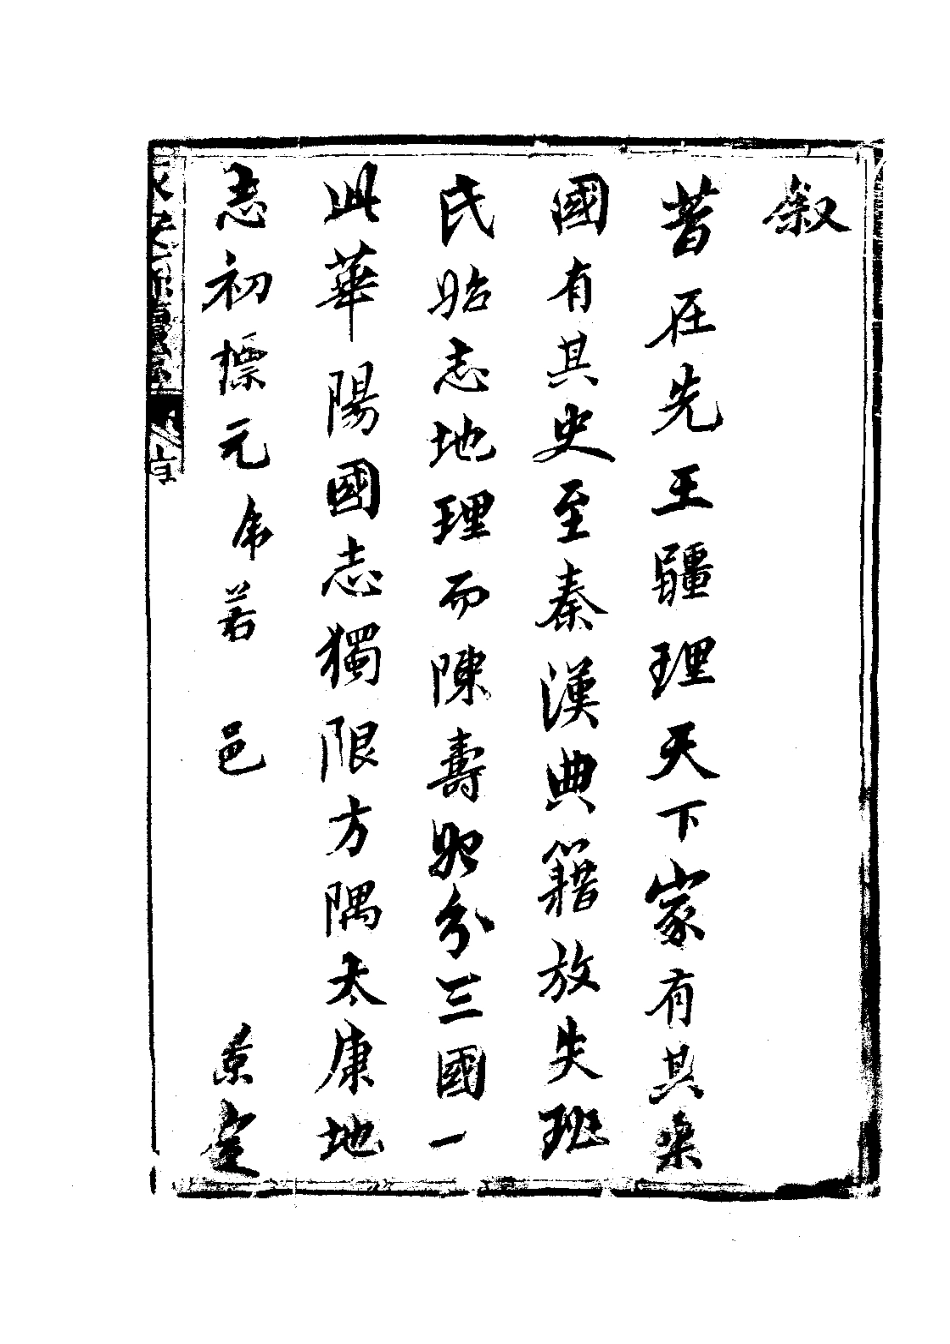 叙
昔在先王疆理天下家有其乘
國有其史至秦漢典籍放失班
氏始志地理而陳壽始分三國一
此華陽國志獨限方隅太康地
志初標元若邑景定